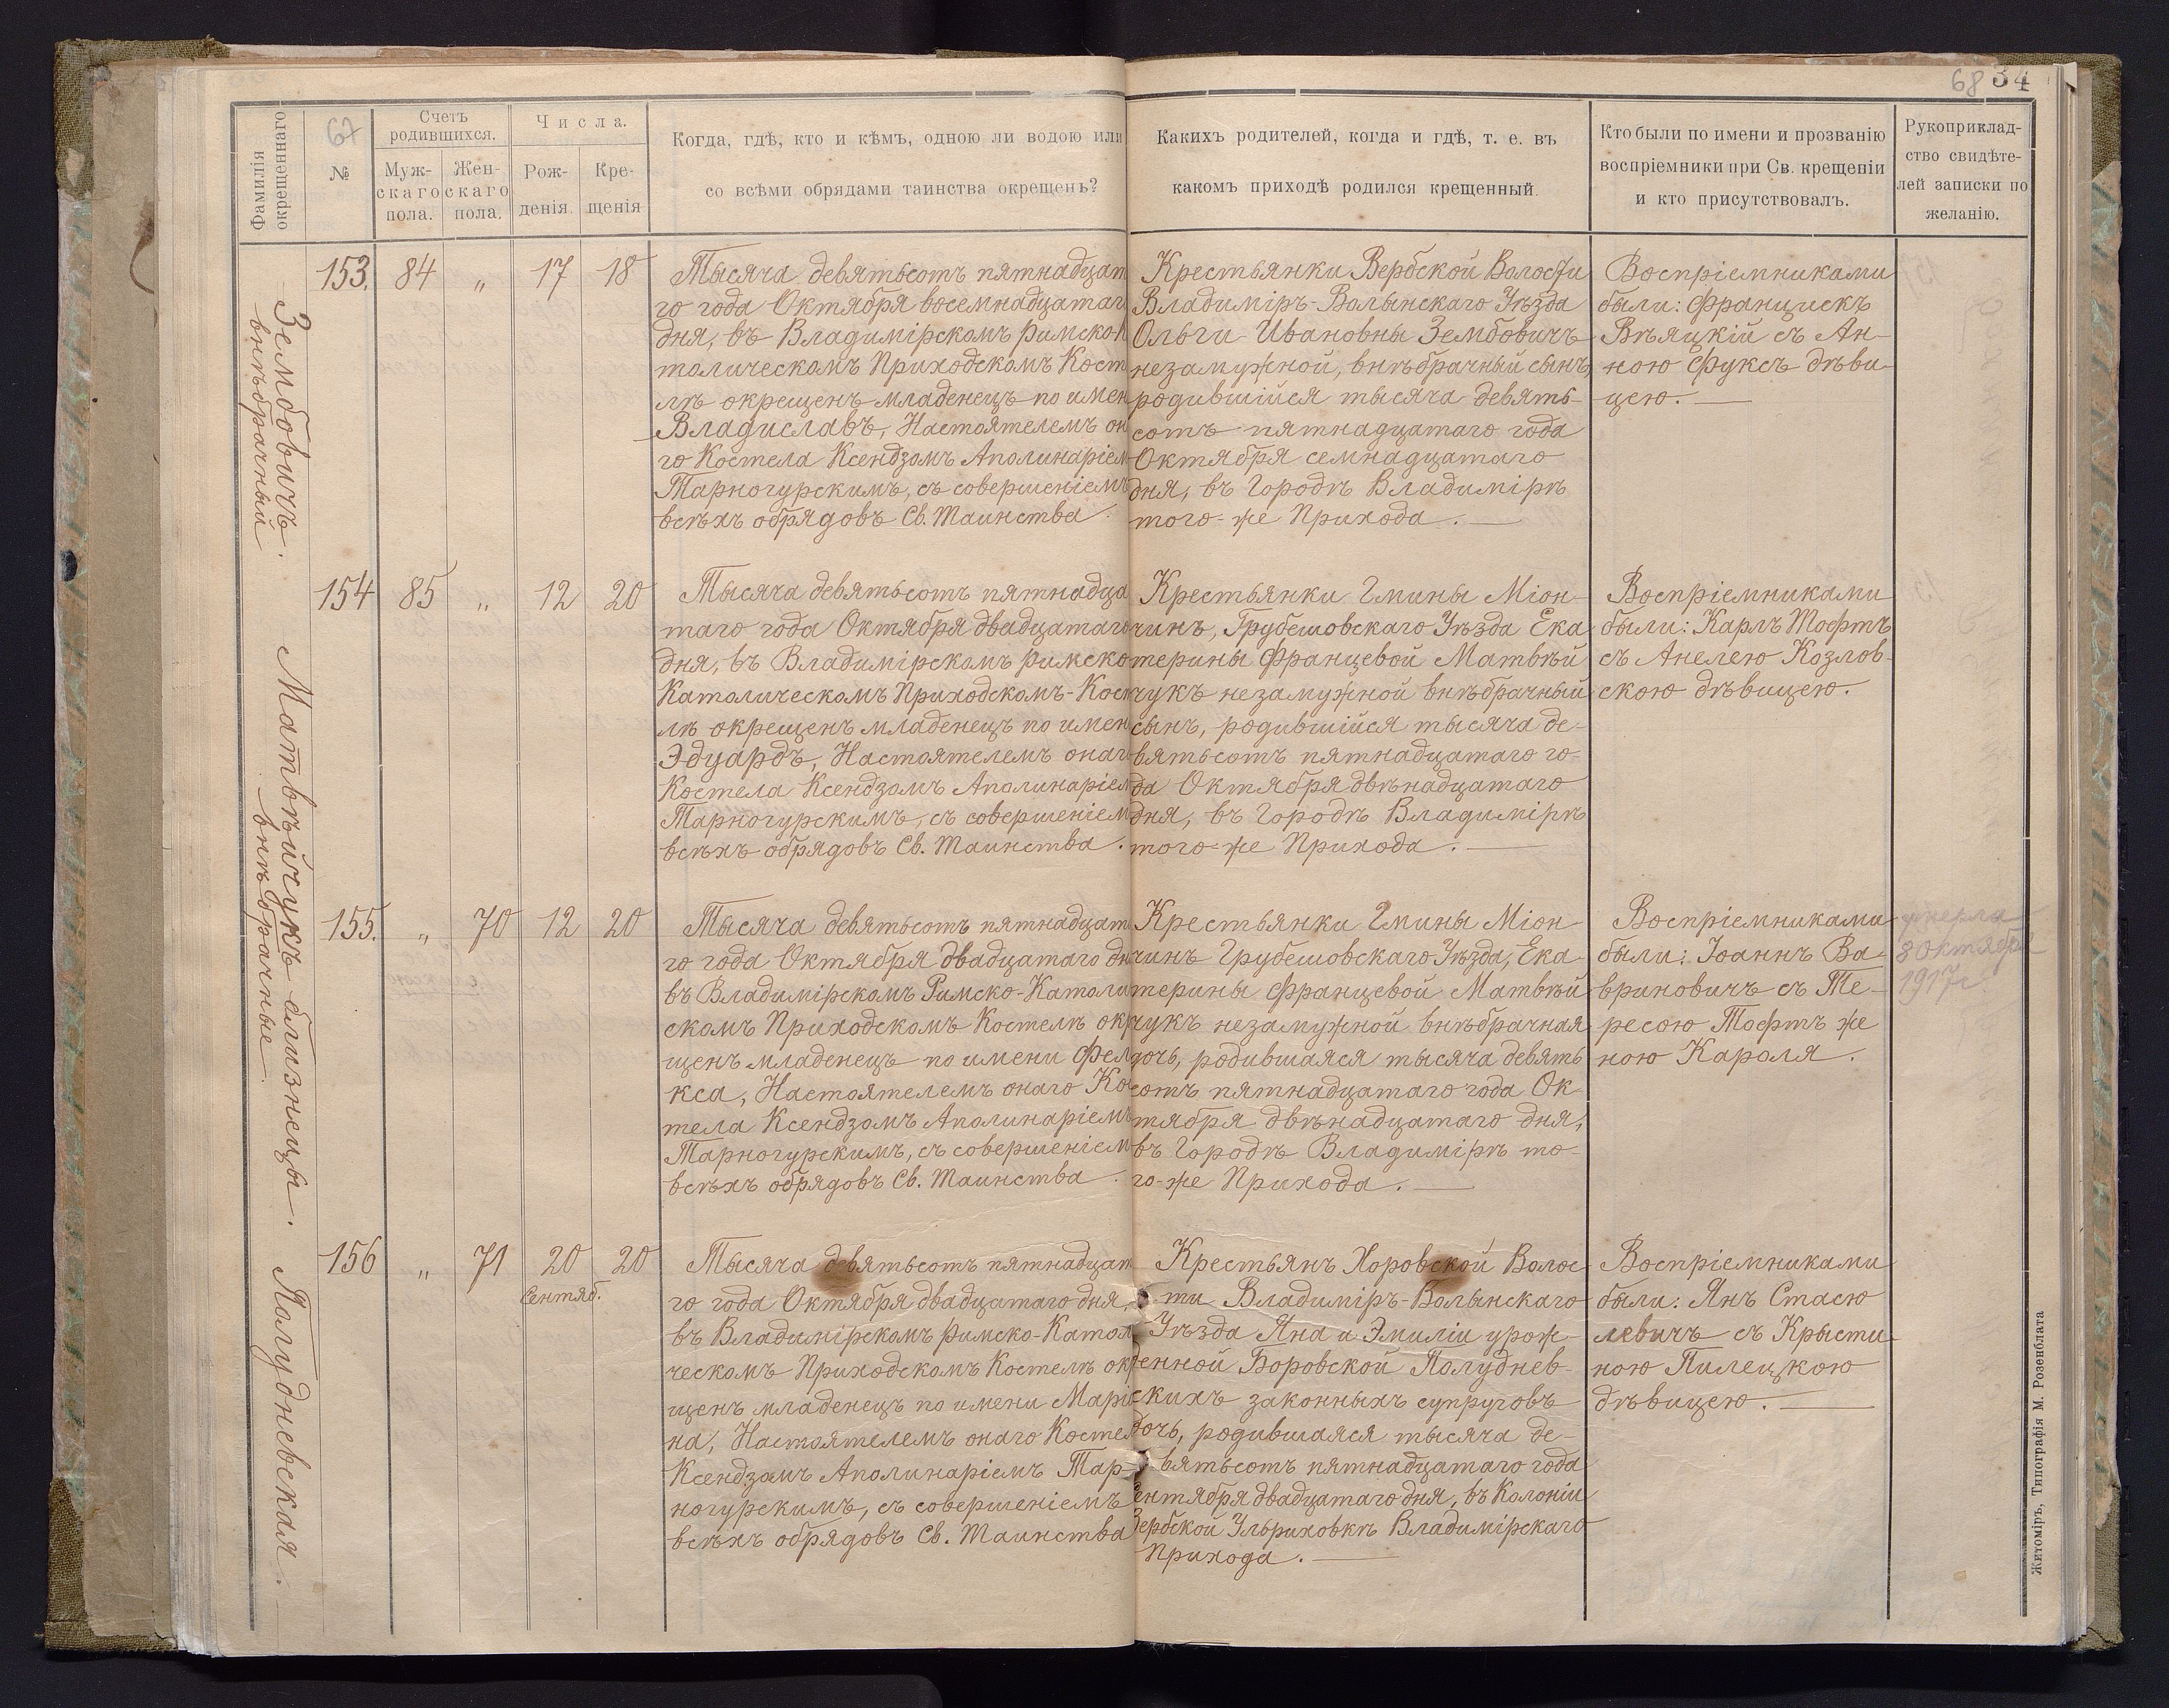 68 34
Фамилія
окрещеннаго
67
№
Счетъ
родившихся.
Муж-
скаго
пола.
Жен-
скаго
пола.
Числа.
Рож-
денія.
Кре-
щенія
Когда, гдѣ, кто и кѣмъ, одною ли водою или
со всѣми обрядами таинства окрещенъ?
Какихъ родителей, когда и гдѣ, т. е. въ
какомъ приходѣ родился крещенный.
Кто были по имени и прозванію
воспріемники при Св. крещеніи
и кто присутствовалъ.
Рукоприклад-
ство свидѣте-
лей записки по
желанію.
Зембовичъ.
внѣбрачный
153. 84 „ 17 18
Тысяча девятьсотъ пятнадцат
го года Октября восемнадцатаг
дня, въ Владимірскомъ Римско-К
толическомъ Приходскомъ Косте
лѣ окрещенъ младенецъ по имен
Владиславъ, Настоятелемъ он
го Костела Ксендзомъ Аполинаріем
Тарногурскимъ, съ совершеніемъ
всѣхъ обрядовъ Св. Таинства.
Крестьянки Вербской Волости
Владиміръ-Волынскаго Уѣзда
Ольги Ивановны Зембовичъ
незамужной, внѣбрачный сынъ,
родившійся тысяча девять-
сотъ пятнадцатаго года
Октября семнадцатаго
дня, въ Городѣ Владимірѣ
того-же Прихода.
Воспріемниками
были: Францискъ
Вѣяцкій съ Ан-
ною Фуксъ дѣви-
цею.
Матвѣйчукъ близнецы.
внѣбрачные
154 85 „ 12 20
Тысяча девятьсотъ пятнадца
таго года Октября двадцатаго
дня, въ Владимірскомъ Римско
Католическомъ Приходскомъ-Кост
лѣ окрещенъ младенецъ по имен
Эдуардъ, Настоятелемъ онаг
Костела Ксендзомъ Аполинаріем
Тарногурскимъ, съ совершеніем
всѣхъ обрядовъ Св. Таинства.
Крестьянки Гмины Міон-
чинъ, Грубешовскаго Уѣзда Ека
терины Францевой Матвѣй
чукъ незамужной внѣбрачный
сынъ, родившійся тысяча де-
вятьсотъ пятнадцатаго го-
да Октября двѣнадцатаго
дня, въ Городѣ Владимірѣ
того-же Прихода.
Воспріемниками
были: Карлъ Тофтъ
съ Анелею Козлов-
скою дѣвицею.
155. „ 70 12 20
Тысяча девятьсотъ пятнадцат
го года Октября двадцатаго дн
въ Владимірскомъ Римско-Католи
скомъ Приходскомъ Костелѣ окр
щенъ младенецъ по имени Фели
кса, Настоятелемъ онаго Кос
тела Ксендзомъ Аполинаріемъ
Тарногурскимъ, съ совершеніем
всѣхъ обрядовъ Св. Таинства.
Крестьянки Гмины Міон-
чинъ Грубешовскаго Уѣзда, Ека-
терины Францевой Матвѣй
чукъ незамужной внѣбрачная
дочь, родившаяся тысяча девять
сотъ пятнадцатаго года Ок-
тября двѣнадцатаго дня,
въ Городѣ Владимірѣ то-
го-же Прихода.
Воспріемниками
были: Іоаннъ Ва-
вриновичъ съ Те-
ресою Тофтъ же
ною Кароля.
умерла
8 Октября
1917 г.
Полудневская.
156 „ 71 20 20
Сентяб.
Тысяча девятьсотъ пятнадцат
го года Октября двадцатаго дня,
въ Владимірскомъ Римско-Катол
ческомъ Приходскомъ Костелѣ окр
щенъ младенецъ по имени Маріа
на, Настоятелемъ онаго Костел
Ксендзомъ Аполинаріемъ Тар-
ногурскимъ, съ совершеніемъ
всѣхъ обрядовъ Св. Таинства
Крестьянъ Хоровской Волос
ти Владиміръ-Волынскаго
Уѣзда Яна и Эмиліи урож-
денной Боровской Полуднев-
скихъ законныхъ супруговъ
дочь, родившаяся тысяча де-
вятьсотъ пятнадцатаго года
Сентября двадцатаго дня, въ Колоніи
Вербской Ульриховкѣ Владимірскаго
Прихода.
Воспріемниками
были: Янъ Стасю
левичъ съ Крысти-
ною Пилецкою
дѣвицею.
Житоміръ, Типографія М. Розенблата